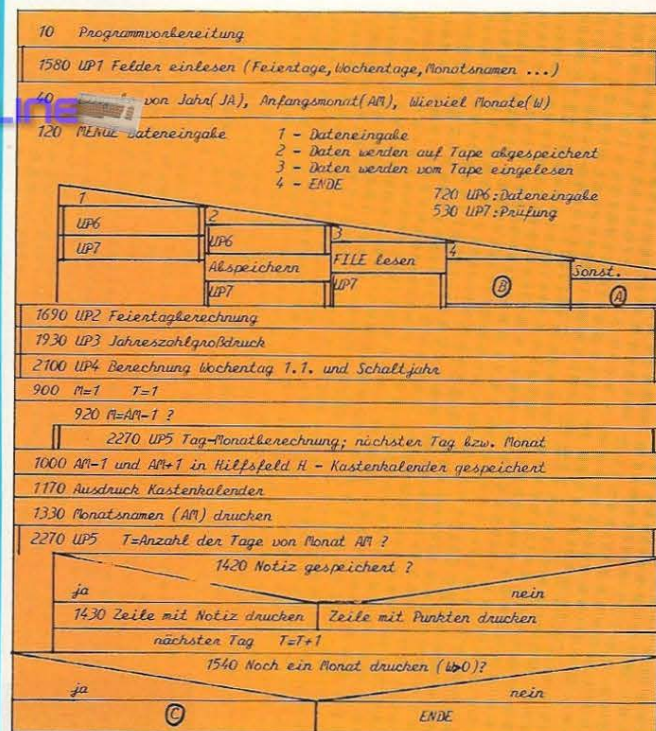 10 Programmvorbereitung
1580 UP1 Felder einlesen (Feiertage, Wochentage, Monatsnamen ...)
40 von Jahr(JA), Anfangsmonat(AM), Wieviel Monate(W)
LINE
120 MENUE Dateneingabe 1 - Dateneingabe
2 - Daten werden auf Tape abgespeichert
3 - Daten werden vom Tape eingelesen
4 - ENDE
720 UP6:Dateneingabe
530 UP7:Prüfung
1 2 3 4 Sonst.
UP6 UP6 FILE lesen Ⓑ Ⓐ
UP7 Abspeichern UP7
UP7
1690 UP2 Feiertagberechnung
1930 UP3 Jahreszahlgroßdruck
2100 UP4 Berechnung Wochentag 1.1. und Schaltjahr
900 M=1 T=1
920 M=AM-1 ?
2270 UP5 Tag-Monatberechnung; nächster Tag bzw. Monat
1000 AM-1 und AM+1 in Hilfsfeld H - Kastenkalender gespeichert
1170 Ausdruck Kastenkalender
1330 Monatsnamen (AM) drucken
2270 UP5 T=Anzahl der Tage von Monat AM ?
1420 Notiz gespeichert ?
ja nein
1430 Zeile mit Notiz drucken Zeile mit Punkten drucken
nächster Tag T=T+1
1540 Noch ein Monat drucken (W>0)?
ja nein
Ⓒ ENDE